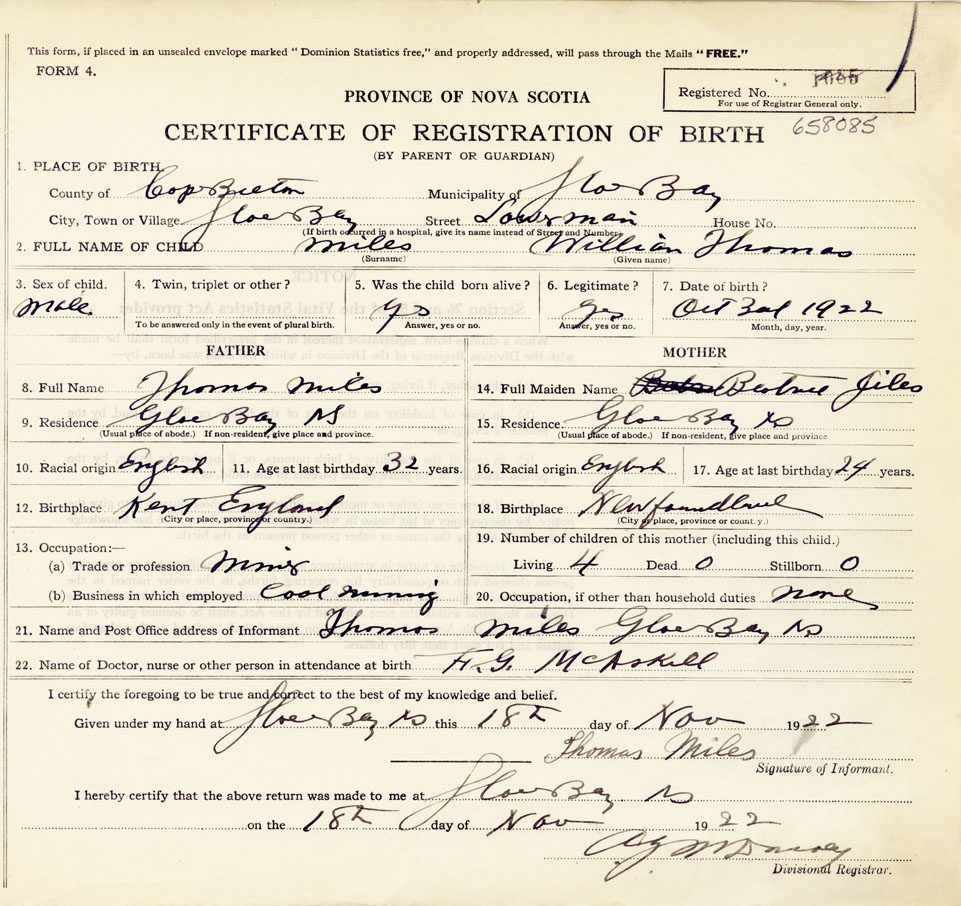 This form, if placed in an unsealed envelope marked "Dominion Statistics free," and properly addressed, will pass through the Mails "FREE."
FORM 4.
Registered No.
For use of Registrar General only.
PROVINCE OF NOVA SCOTIA
CERTIFICATE OF REGISTRATION OF BIRTH 658085
(BY PARENT OR GUARDIAN)
1. PLACE OF BIRTH
County of Cape Breton Municipality of Glace Bay
City, Town or Village Glace Bay Street Lower Main House No.
(If birth occurred in a hospital, give its name instead of Street and Number)
2. FULL NAME OF CHILD Miles William Thomas
(Surname) (Given name)
3. Sex of child. 4. Twin, triplet or other? 5. Was the child born alive? 6. Legitimate? 7. Date of birth?
Male. Yes Yes Oct 3rd 1922
To be answered only in the event of plural birth. Answer, yes or no. Answer, yes or no. Month, day, year.
FATHER MOTHER
8. Full Name Thomas Miles 14. Full Maiden Name Beatrice Jiles
9. Residence Glace Bay NS 15. Residence Glace Bay NS
(Usual place of abode.) If non-resident, give place and province. (Usual place of abode.) If non-resident, give place and province
10. Racial origin English 11. Age at last birthday 32 years. 16. Racial origin English 17. Age at last birthday 24 years.
12. Birthplace Kent England 18. Birthplace Newfoundland
(City or place, province or country.) (City or place, province or country.)
13. Occupation:— 19. Number of children of this mother (including this child.)
(a) Trade or profession Miner Living 4 Dead 0 Stillborn 0
(b) Business in which employed Coal mining 20. Occupation, if other than household duties none
21. Name and Post Office address of Informant Thomas Miles Glace Bay NS
22. Name of Doctor, nurse or other person in attendance at birth H.G. McAskill
I certify the foregoing to be true and correct to the best of my knowledge and belief.
Given under my hand at Glace Bay NS this 18th day of Nov 1922
Thomas Miles
Signature of Informant.
I hereby certify that the above return was made to me at Glace Bay NS
on the 18th day of Nov 1922
Divisional Registrar.